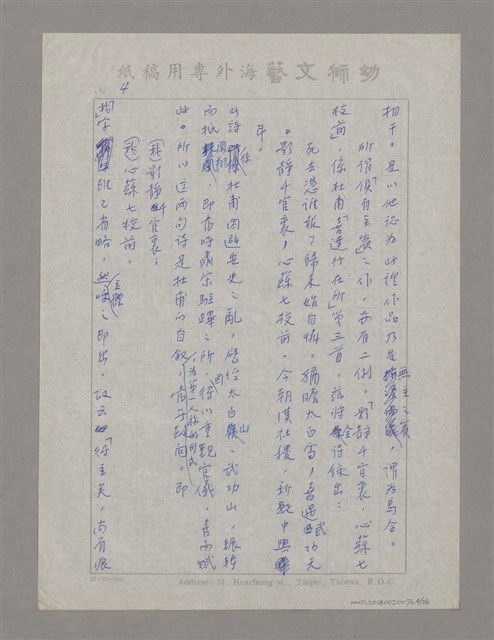 幼獅文藝海外專用稿紙
4
相干。是以他認為此種作品乃是無主之賓,謂為烏合。
所謂「倶自主裏」之作,亦有二例。「影靜千官裏,心蘇七
校前」,係杜甫「喜達行在所」第三首,茲將全詩錄出:
死去憑誰報?歸來始自憐。猶瞻太白雪,喜遇武功天
。影靜千官裏,心蘇七校前。今朝漢社稷,新數中興
年。
此詩係杜甫因避安史之亂,歷經太白山、武功山,輾轉
而抵鳳翔,即當時肅宗駐蹕之所,得以重覩官儀,喜而賦
此。所以這兩句詩是杜甫的自敘(為第一人稱的形式),情予疑問。即
(我)影靜千官裏;
(我)心蘇七校前。
「我」字雖已省略,主體
之即出,故云「得主矣,尚有痕
Address: 51, Hanchung st., Taipei, Taiwan, R.O.C